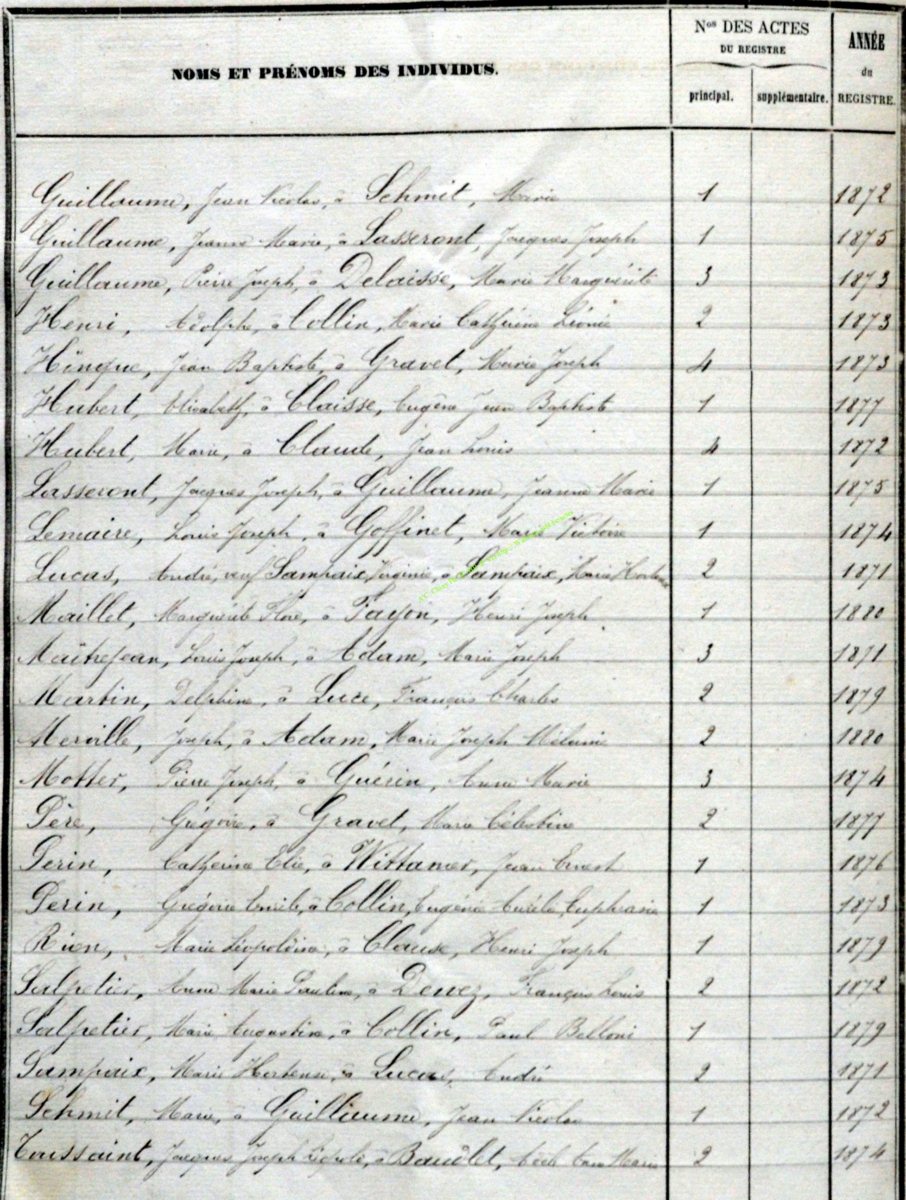 NOMS ET PRÉNOMS DES INDIVIDUS.
Nos DES ACTES
DU REGISTRE
principal.
supplémentaire.
ANNÉE
du
REGISTRE.
Guillaume, Jean Nicolas, à Schmit, Marie 1 1872
Guillaume, Jeanne Marie, à Lasseront, Jacques Joseph 1 1875
Guillaume, Pierre Joseph, à Delaisse, Marie Marguérite 3 1873
Henri, Adolphe, à Collin, Marie Cathérine Léonie 2 1873
Hinque, Jean Baptiste, à Gravet, Marie Joseph 4 1873
Hubert, Elisabeth, à Claisse, Eugène Jean Baptiste 1 1877
Hubert, Marie, à Claude, Jean Louis 4 1872
Lasseront, Jacques Joseph, à Guillaume, Jeanne Marie 1 1875
Lemaire, Louis Joseph, à Goffinet, Marie Victoire 1 1874
Lucas, André, veuf Sampaix, Virginie, à Sampaix, Marie Hortense 2 1871
Maillet, Marguérite Flore, à Fayon, Henri Joseph 1 1880
Maîtrejean, Louis Joseph, à Adam, Marie Joseph 3 1871
Martin, Delphine, à Luce, François Charles 2 1879
Merville, Joseph, à Adam, Marie Joseph Mélanie 2 1880
Motter, Pierre Joseph, à Guérin, Anne Marie 3 1874
Père, Grégoire, à Gravet, Marie Célestine 2 1877
Perin, Catherine Elie, à Wittamer, Jean Ernest 1 1876
Perin, Grégoire Emile, à Collin, Eugénie Aurélie Euphrasie 1 1873
Rien, Marie Léopoldine, à Clause, Henri Joseph 1 1879
Salpetier, Anne Marie Pauline, à Dewez, François Louis 2 1872
Salpetier, Marie Augustine, à Collin, Paul Belloni 1 1879
Sampaix, Marie Hortense, à Lucas, André 2 1871
Schmit, Marie, à Guillaume, Jean Nicolas 1 1872
Toussaint, Jacques Joseph à Baudlet, Marie 2 1874